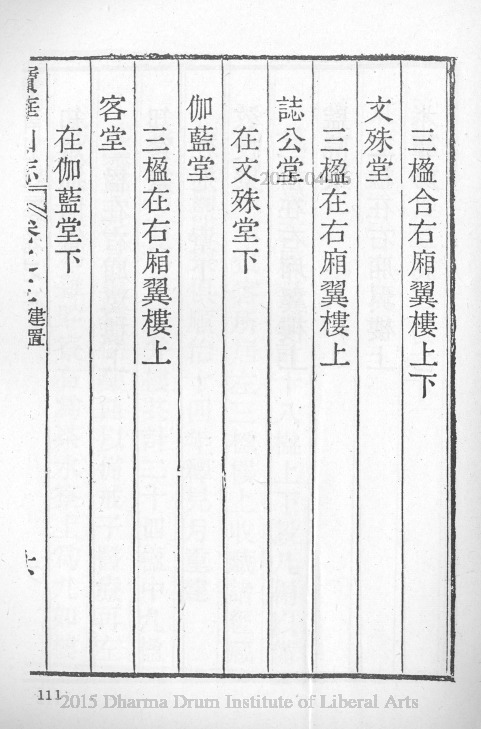 三楹合右廂翼樓上下
文殊堂
三楹在右廂翼樓上
誌公堂
在文殊堂下
伽藍堂
三楹在右廂翼樓上
客堂
在伽藍堂下
寶華山志
建置
六
111
2015 Dharma Drum Institute of Liberal Arts